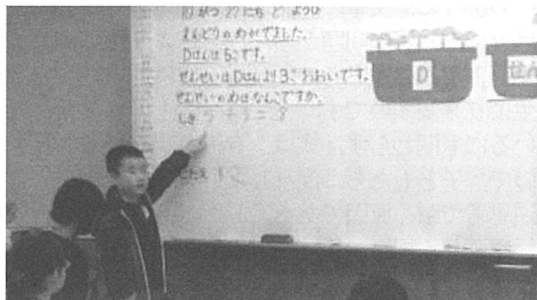 10がつ27にち どようび
えんどうのめがでました。
Dはんは5こです。
せんせいはDはんより3こおおいです。
せんせいのめはなんこですか。
しき 5+3=8
こたえ 8こ
D
せん